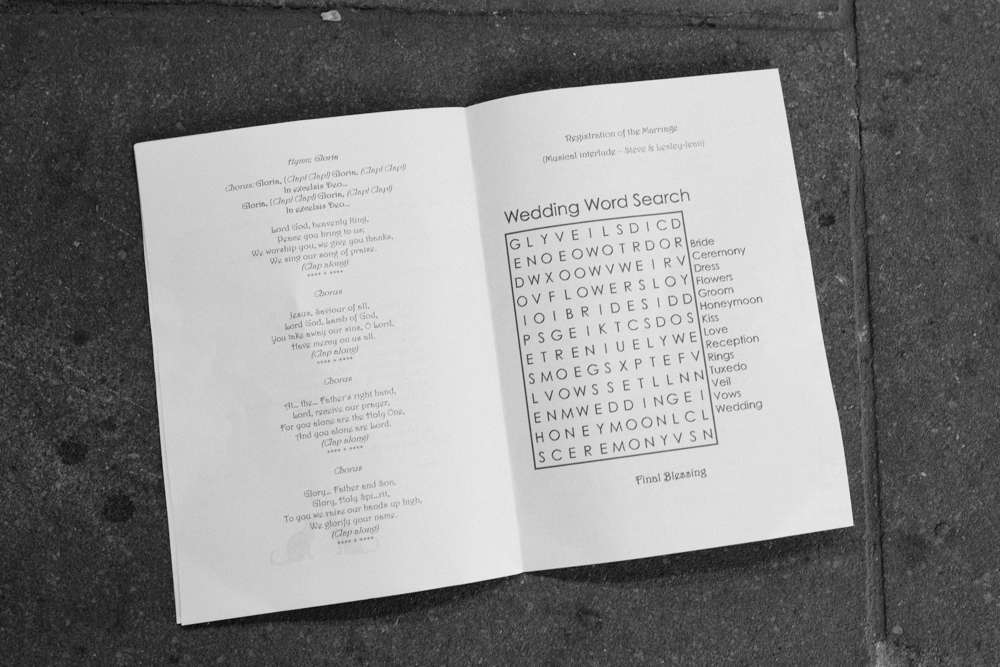 Hymn: Gloria
Chorus: Gloria, (Clap! Clap!) Gloria, (Clap! Clap!)
In excelsis Deo...
Gloria, (Clap! Clap!) Gloria, (Clap! Clap!)
In excelsis Deo...
Lord God, heavenly King,
Peace you bring to us;
We worship you, we give you thanks,
We sing our song of praise.
(Clap along)
**** * ****
Chorus
Jesus, Saviour of all,
Lord God, Lamb of God,
You take away our sins, O Lord,
Have mercy on us all.
(Clap along)
**** * ****
Chorus
At... the... Father's right hand,
Lord, receive our prayer,
For you alone are the Holy One,
And you alone are Lord.
(Clap along)
**** * ****
Chorus
Glory... Father and Son,
Glory, Holy Spi...rit,
To you we raise our hands up high,
We glorify your name.
(Clap along)
**** * ****
Registration of the Marriage
(Musical interlude – Steve & Lesley-Jean)
Wedding Word Search
G L Y V E I L S D I C D
E N O E O W O T R D O R
D W X O O W V W E I R V
O V F L O W E R S L O Y
I O I B R I D E S I D D
P S G E I K T C S D O S
E T R E N I U E L Y W E
S M O E G S X P T E F V
L V O W S S E T L L N N
E N M W E D D I N G E I
H O N E Y M O O N L C L
S C E R E M O N Y V S N
Bride
Ceremony
Dress
Flowers
Groom
Honeymoon
Kiss
Love
Reception
Rings
Tuxedo
Veil
Vows
Wedding
Final Blessing